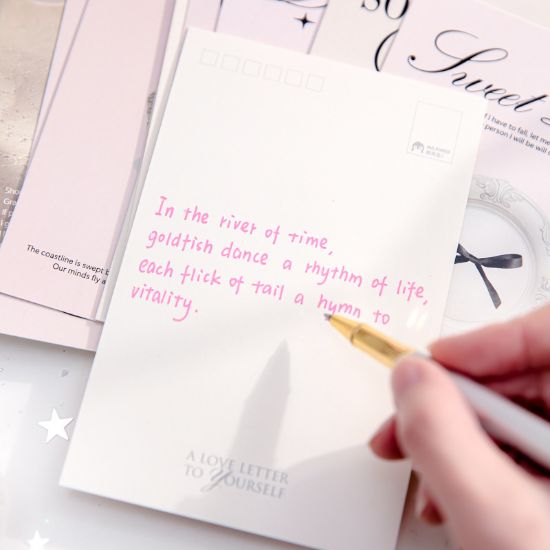 SO
Sweet
i have to fall, let me
person I will be will
In the river of time,
goldfish dance a rhythm of life,
each flick of tail a hymn to
vitality.
The coastline is swept b
Our minds fly a
A LOVE LETTER
TO YOURSELF